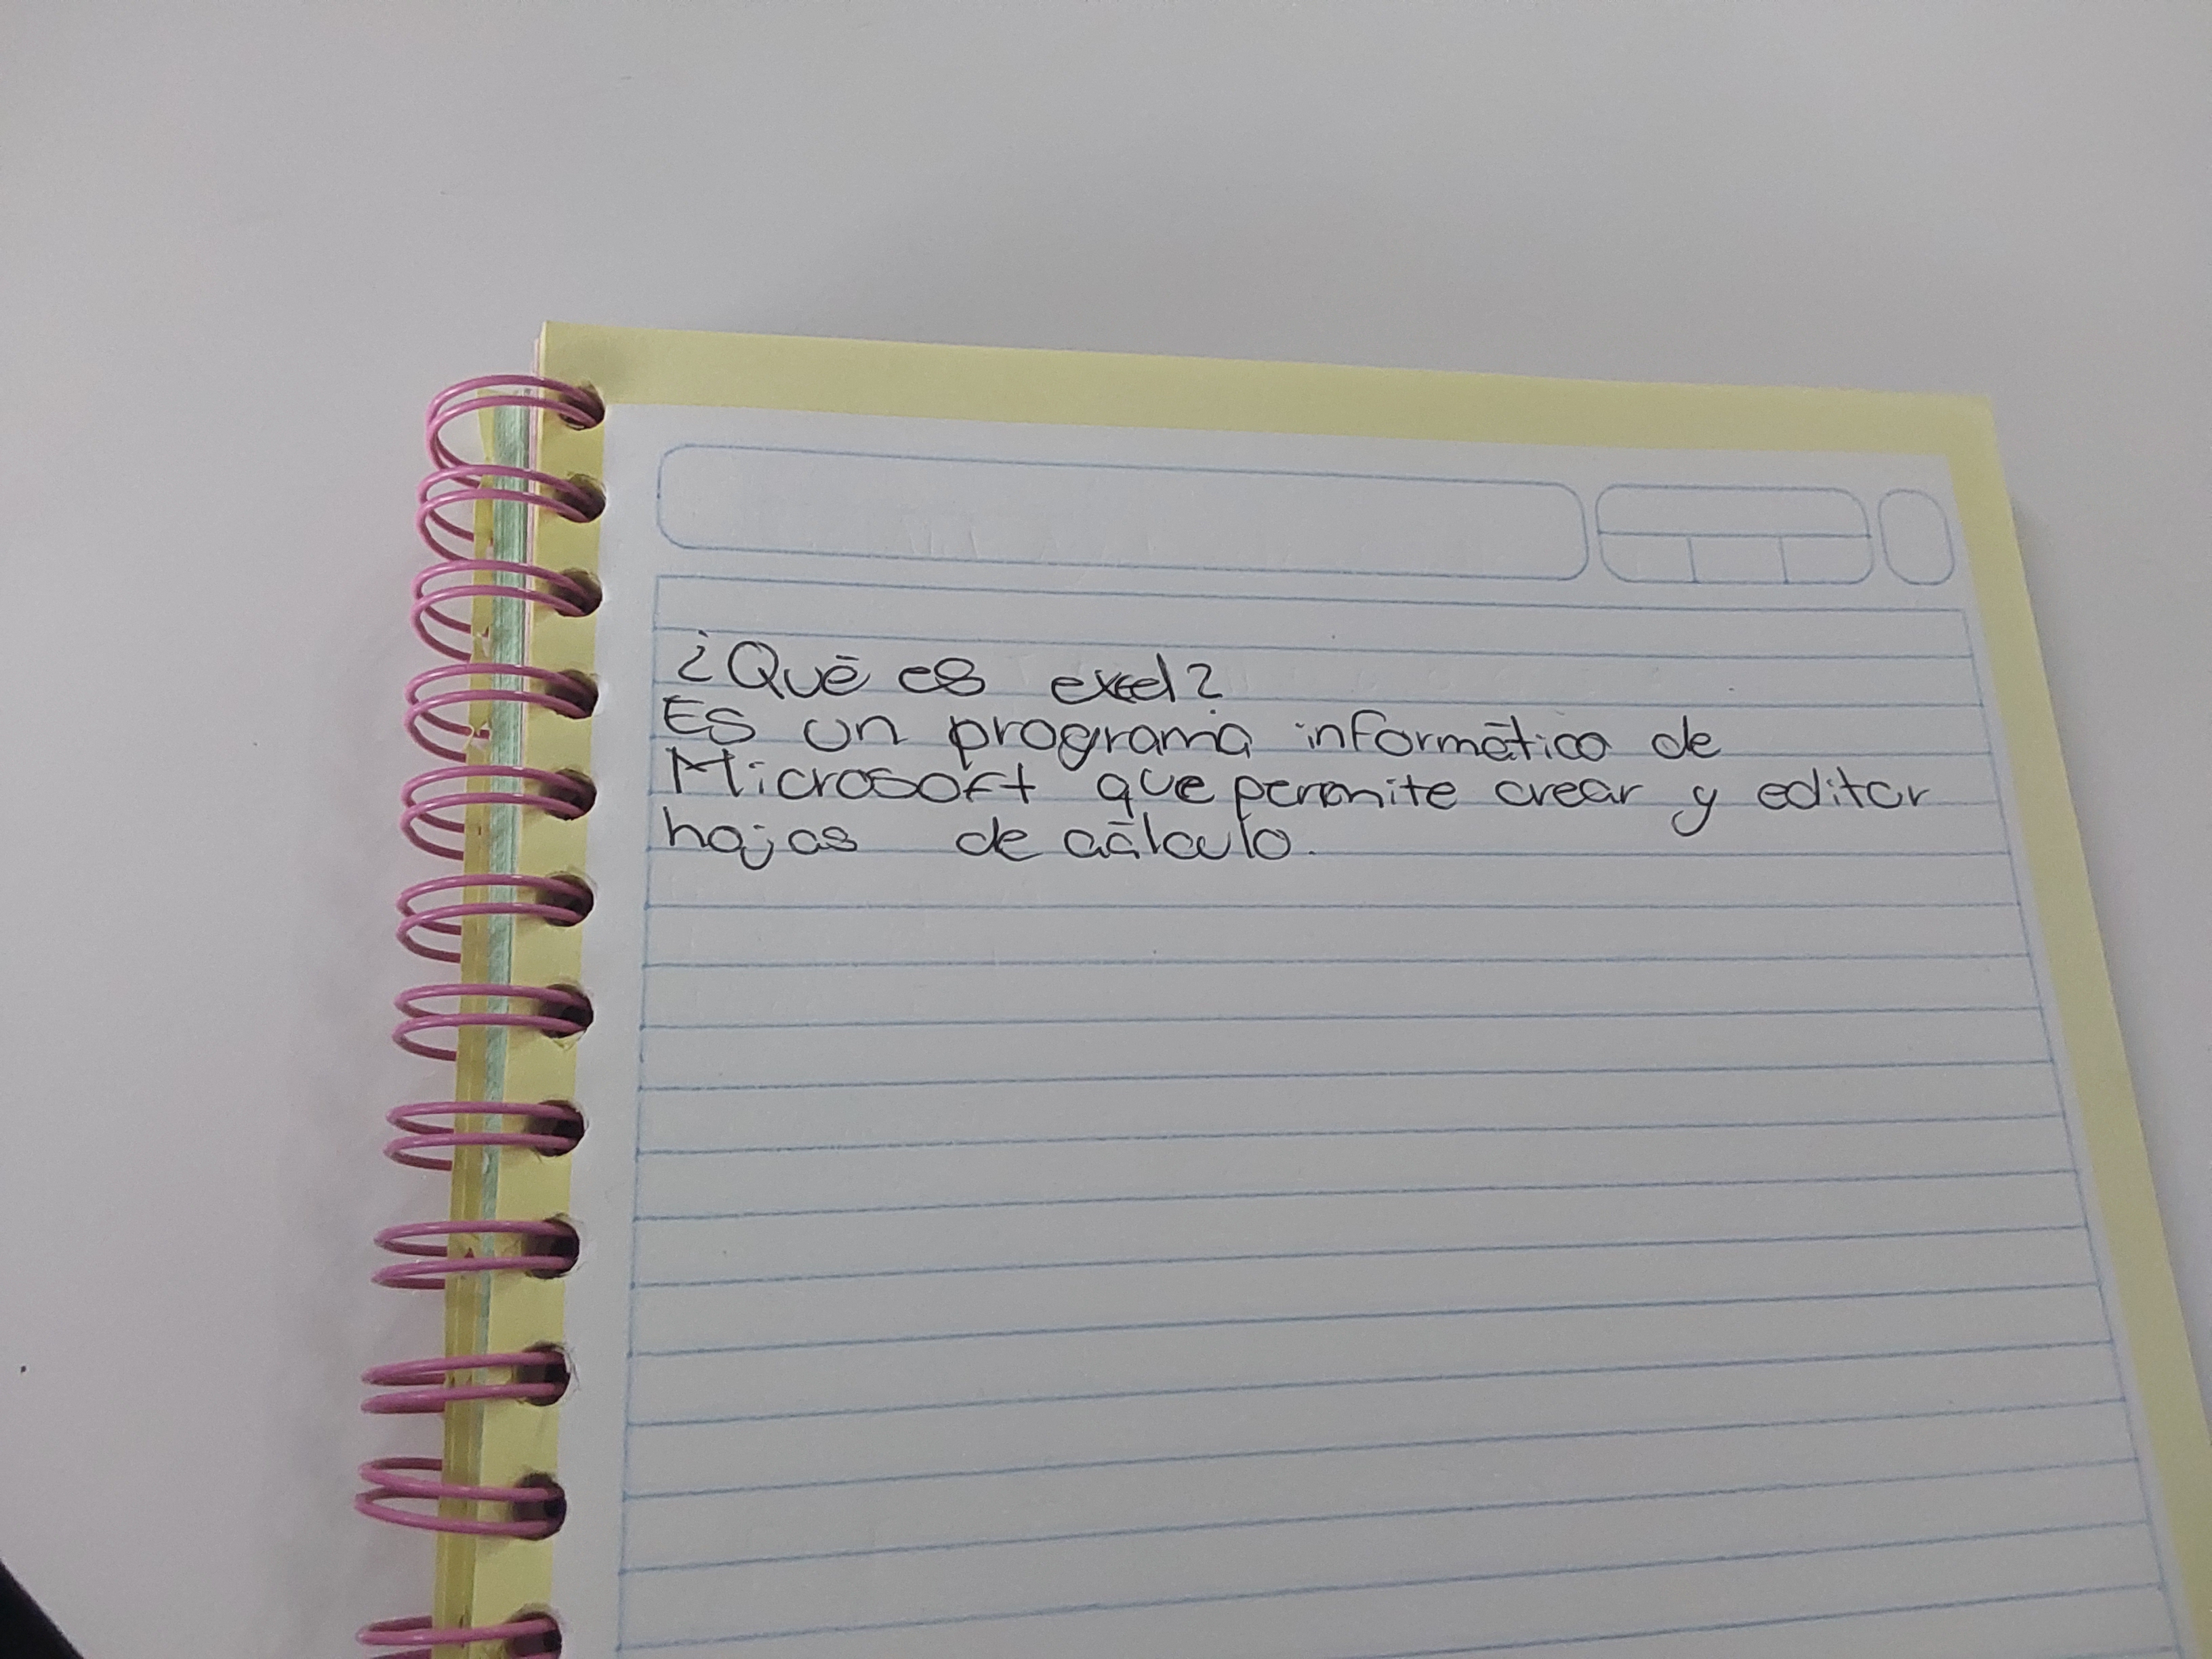 ¿Qué es excel?
Es un programa informático de
Microsoft que permite crear y editar
hojas de cálculo.